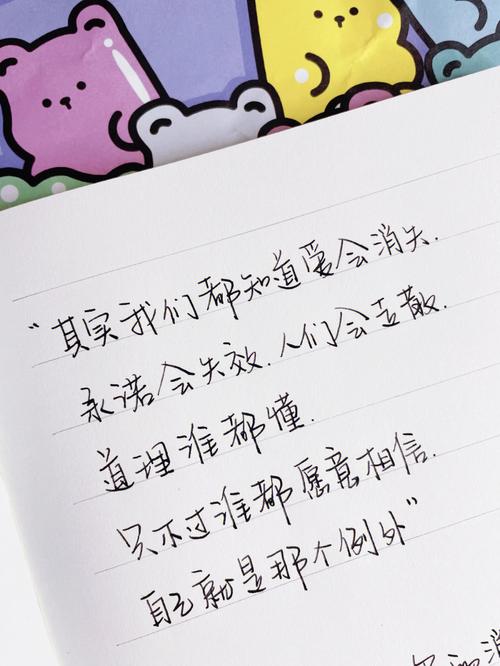 “其实我们都知道爱会消失.
承诺会失效.人们会走散.
道理谁都懂.
只不过谁都愿意相信.
自己就是那个例外”